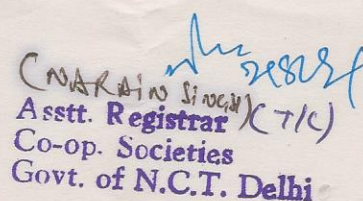 (NARAIN SINGH)
Asstt. Registrar (T/C)
Co-op. Societies
Govt. of N.C.T. Delhi